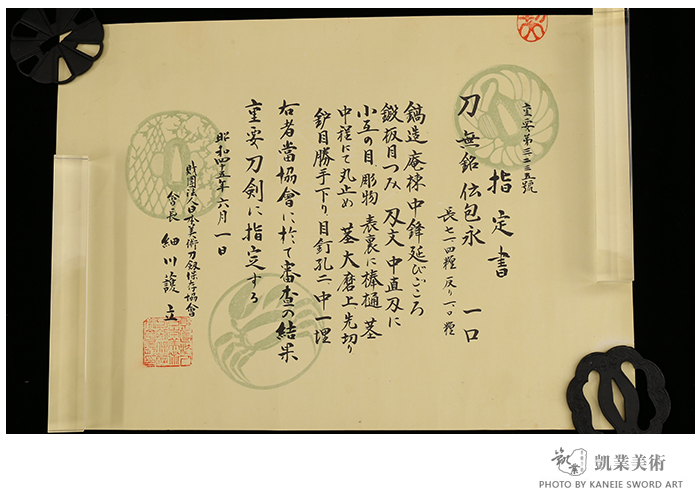 重要第三二三五號
指定書
刀 無銘 伝包永 一口
長七一・四糎 反り一・八〇糎
鎬造 庵棟 中鋒延びごころ
鍛 板目つみ 刃文 中直刃に
小互の目 彫物 表裏に棒樋 茎
中程にて丸止め 茎 大磨上 先切り
鑢目勝手下り 目釘孔二 中一埋
右者當協會に於て審査の結果
重要刀剣に指定する
昭和四十五年六月一日
財團法人日本美術刀剣保存協會
會長 細川護立
凱業美術
PHOTO BY KANEIE SWORD ART